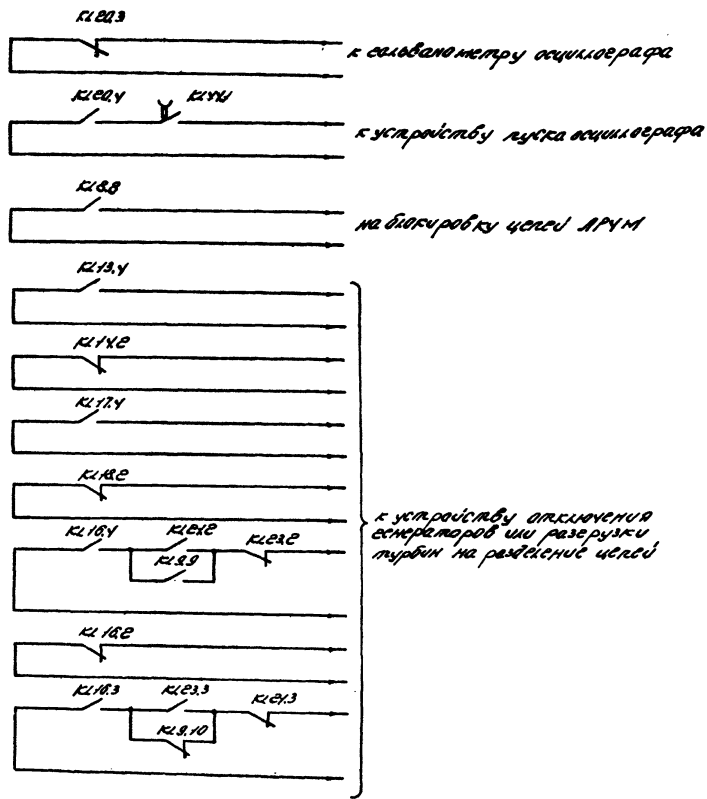 KL20.3
к гальванометру осциллографа
KL20.4
к устройству пуска осциллографа
KL8.8
на блокировку цепей АРЧМ
KL13.4
KL14.2
KL17.4
KL18.2
KL16.4 KL21.2 KL23.2
KL9.9
к устройству отключения
генераторов или разгрузки
турбин на разделение цепей
KL16.2
KL16.3 KL23.3 KL21.3
KL9.10